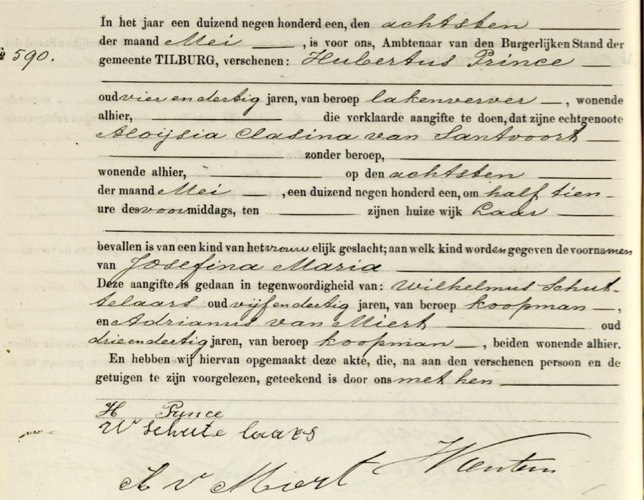 In het jaar een duizend negen honderd een, den achtsten
der maand Mei, is voor ons, Ambtenaar van den Burgerlijken Stand der
№ 590.
gemeente TILBURG, verschenen: Hubertus Prince
oud vier en dertig jaren, van beroep lakenverver, wonende
alhier, die verklaarde aangifte te doen, dat zijne echtgenoote
Aloijsia Clasina van Santvoort
zonder beroep,
wonende alhier, op den achtsten
der maand Mei, een duizend negen honderd een, om half tien
ure des voormiddags, ten zijnen huize wijk Laar
bevallen is van een kind van het vrouwelijk geslacht; aan welk kind worden gegeven de voornamen
van Josefina Maria
Deze aangifte is gedaan in tegenwoordigheid van: Wilhelmus Schut-
telaars oud vijf en dertig jaren, van beroep koopman,
en Adrianus van Miert oud
drie en dertig jaren, van beroep koopman, beiden wonende alhier.
En hebben wij hiervan opgemaakt deze akte, die, na aan den verschenen persoon en de
getuigen te zijn voorgelezen, geteekend is door ons met hen
H Prince
W Schutelaars
A v Miert